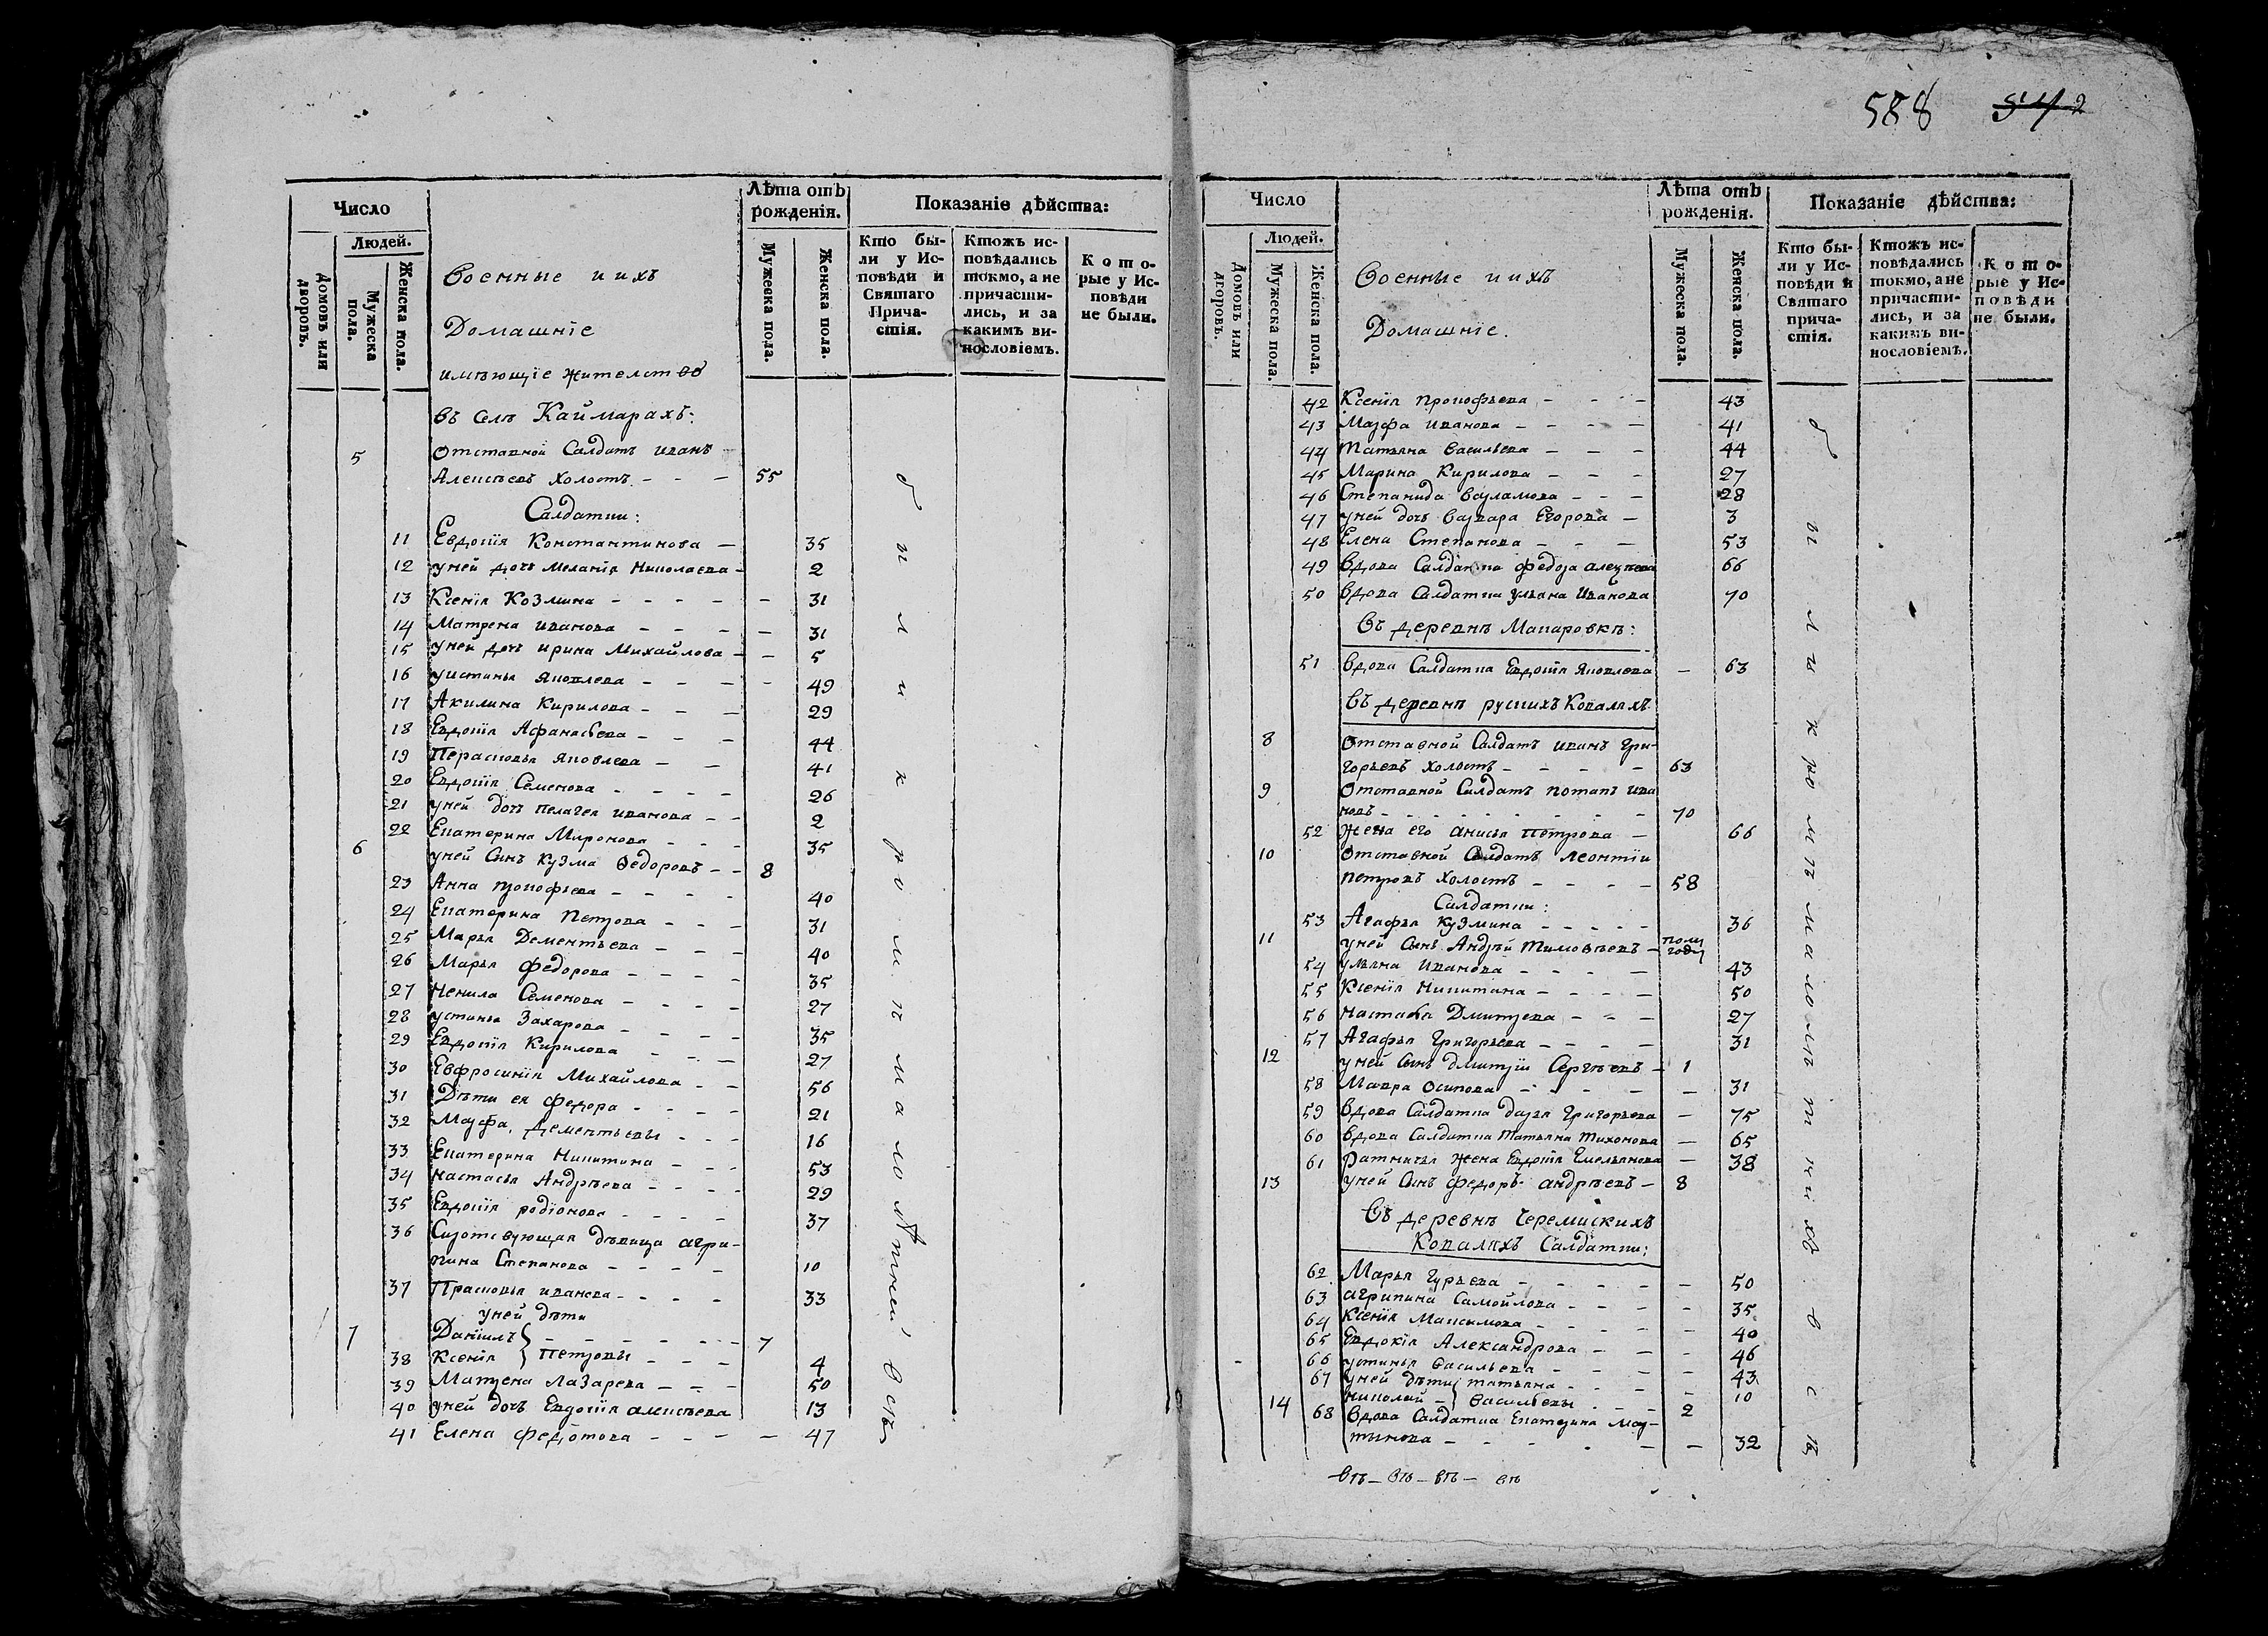 588 542
Число
Людей.
Домовъ или дворовъ.
Мужеска пола.
Женска пола.
Военные и ихъ
Домашніе
имѣющіе жителство
Лѣта отъ рожденія.
Мужеска пола.
Женска пола.
Показаніе дѣйства:
Кто бы-
ли у Ис-
повѣди и
Святаго
Прича-
стія.
Ктожъ ис-
повѣдались
токмо, а не
причасти-
лись, и за
какимъ ви-
нословіемъ.
Кото-
рые у Ис-
повѣди
не были.
въ селѣ Каймарахъ:
5 Отставной Салдатъ иванъ
Алексѣевъ холостъ - - - 55
Салдатки:
11 Евдокія Константинова - 35
12 уней дочь Меланія Николаева - 2
13 Ксенія Козмина - - - - - 31
14 Матрена иванова - - - - - 31
15 уней дочь ирина Михайлова - - 5
16 устинья Яковлева - - - - 49
17 Акилина Кирилова - - - 29
18 Евдокія Афанасьева - - - 44
19 Перасковья Яковлева - - 41
20 Евдокія Семенова - - - - 26
21 уней дочь пелагея иванова - - 2
22 Екатерина Миронова - - - 35
6 уней Сынъ Кузма Ѳедоровъ - - 8
23 Анна прокофьева - - - - 40
24 Екатерина Петрова - - - 31
25 Марья Дементьева - - - 40
26 Марья федорова - - - - 35
27 Ненила Семенова - - - - 27
28 устинья Захарова - - - - 35
29 Евдокія Кирилова - - - 27
30 Евфросинія Михайлова - - 56
31 Дѣти ея федора - - - - 21
32 Марфа, Дементьевы - - - 16
33 Екатерина Никитина - - - 53
34 настасья Андрѣева - - - - 29
35 Евдокія родіонова - - - - 37
36 Сиротствующая дѣвица агри-
пина Степанова - - - - 10
37 Прасковья иванова - - - - 33
уней дѣти
7 Даніилъ } - - - - - - - 7
38 Ксенія } Петровы - - - 4
39 Матрена лазарева - - - 50
40 уней дочь Евдокія алексѣева 13
41 Елена федотова - - - - 47
были кромѣ малолѣтней всѣ
Число
Людей.
Домовъ или дворовъ.
Мужеска пола.
Женска пола.
Военные и ихъ
Домашніе.
Лѣта отъ рожденія.
Мужеска пола.
Женска пола.
Показаніе дѣйства:
Кто бы-
ли у Ис-
повѣди и
Святаго
прича-
стія.
Ктожъ ис-
повѣдались
токмо, а не
причасти-
лись, и за
какимъ ви-
нословіемъ.
Кото-
рые у Ис-
повѣди
не были.
42 Ксенія прокофьева - - - - 43
43 Марфа иванова - - - - 41
44 Татьяна васильева - - - 44
45 Марина Кирилова - - - 27
46 Степанида варламова - - - 28
47 уней дочь варвара Егорова - 3
48 Елена Степанова - - - 53
49 вдова Салдатка федора 66
50 вдова Салдатка ульяна иванова 70
въ деревнѣ Макаровкѣ:
51 вдова Салдатка Евдокія Яковлева - 63
въ деревнѣ рускихъ Коваляхъ
8 Отставной Салдатъ иванъ гри-
горьевъ холостъ - - - - - 63
9 Отставной Салдатъ потапъ ива
новъ - - - - - - - - 70
52 Жена его анисья петрова - 66
10 Отставной Салдатъ леонтіи
петровъ холостъ - - - - 58
Салдатки:
53 Агафья Кузмина - - - - - 36
11 уней Сынъ Андрѣй тимовѣевъ - полугоду
54 ульяна иванова - - - - 43
55 Ксенія Никитина - - - - 50
56 настасья Дмитрева - - - 27
57 Агафья григорьева - - - - 31
12 уней Сынъ дмитріи Сергѣевъ - 1
58 Мавра осипова - - - - - 31
59 вдова Салдатка дарья григорьева - 75
60 вдова Салдатка татьяна тихонова - 65
61 ратничья жена Евдокія Емельянова - 38
13 уней Сынъ федоръ андрѣевъ - 8
Въ деревнѣ Черемискихъ
Коваляхъ Салдатки:
62 Марья гурьева - - - - - 50
63 агрипина Самойлова - - - - 35
64 Ксенія Максимова - - - - - 40
65 Евдокія Александрова - - - 46
66 устинья васильева - - - - - 43
67 уней дѣти } татьяна - - - - 10
14 николай - } васильевы - - 2
68 вдова Салдатка Екатерина Мар-
тынова - - - - - - - 32
были кромѣ малолѣтнихъ всѣ